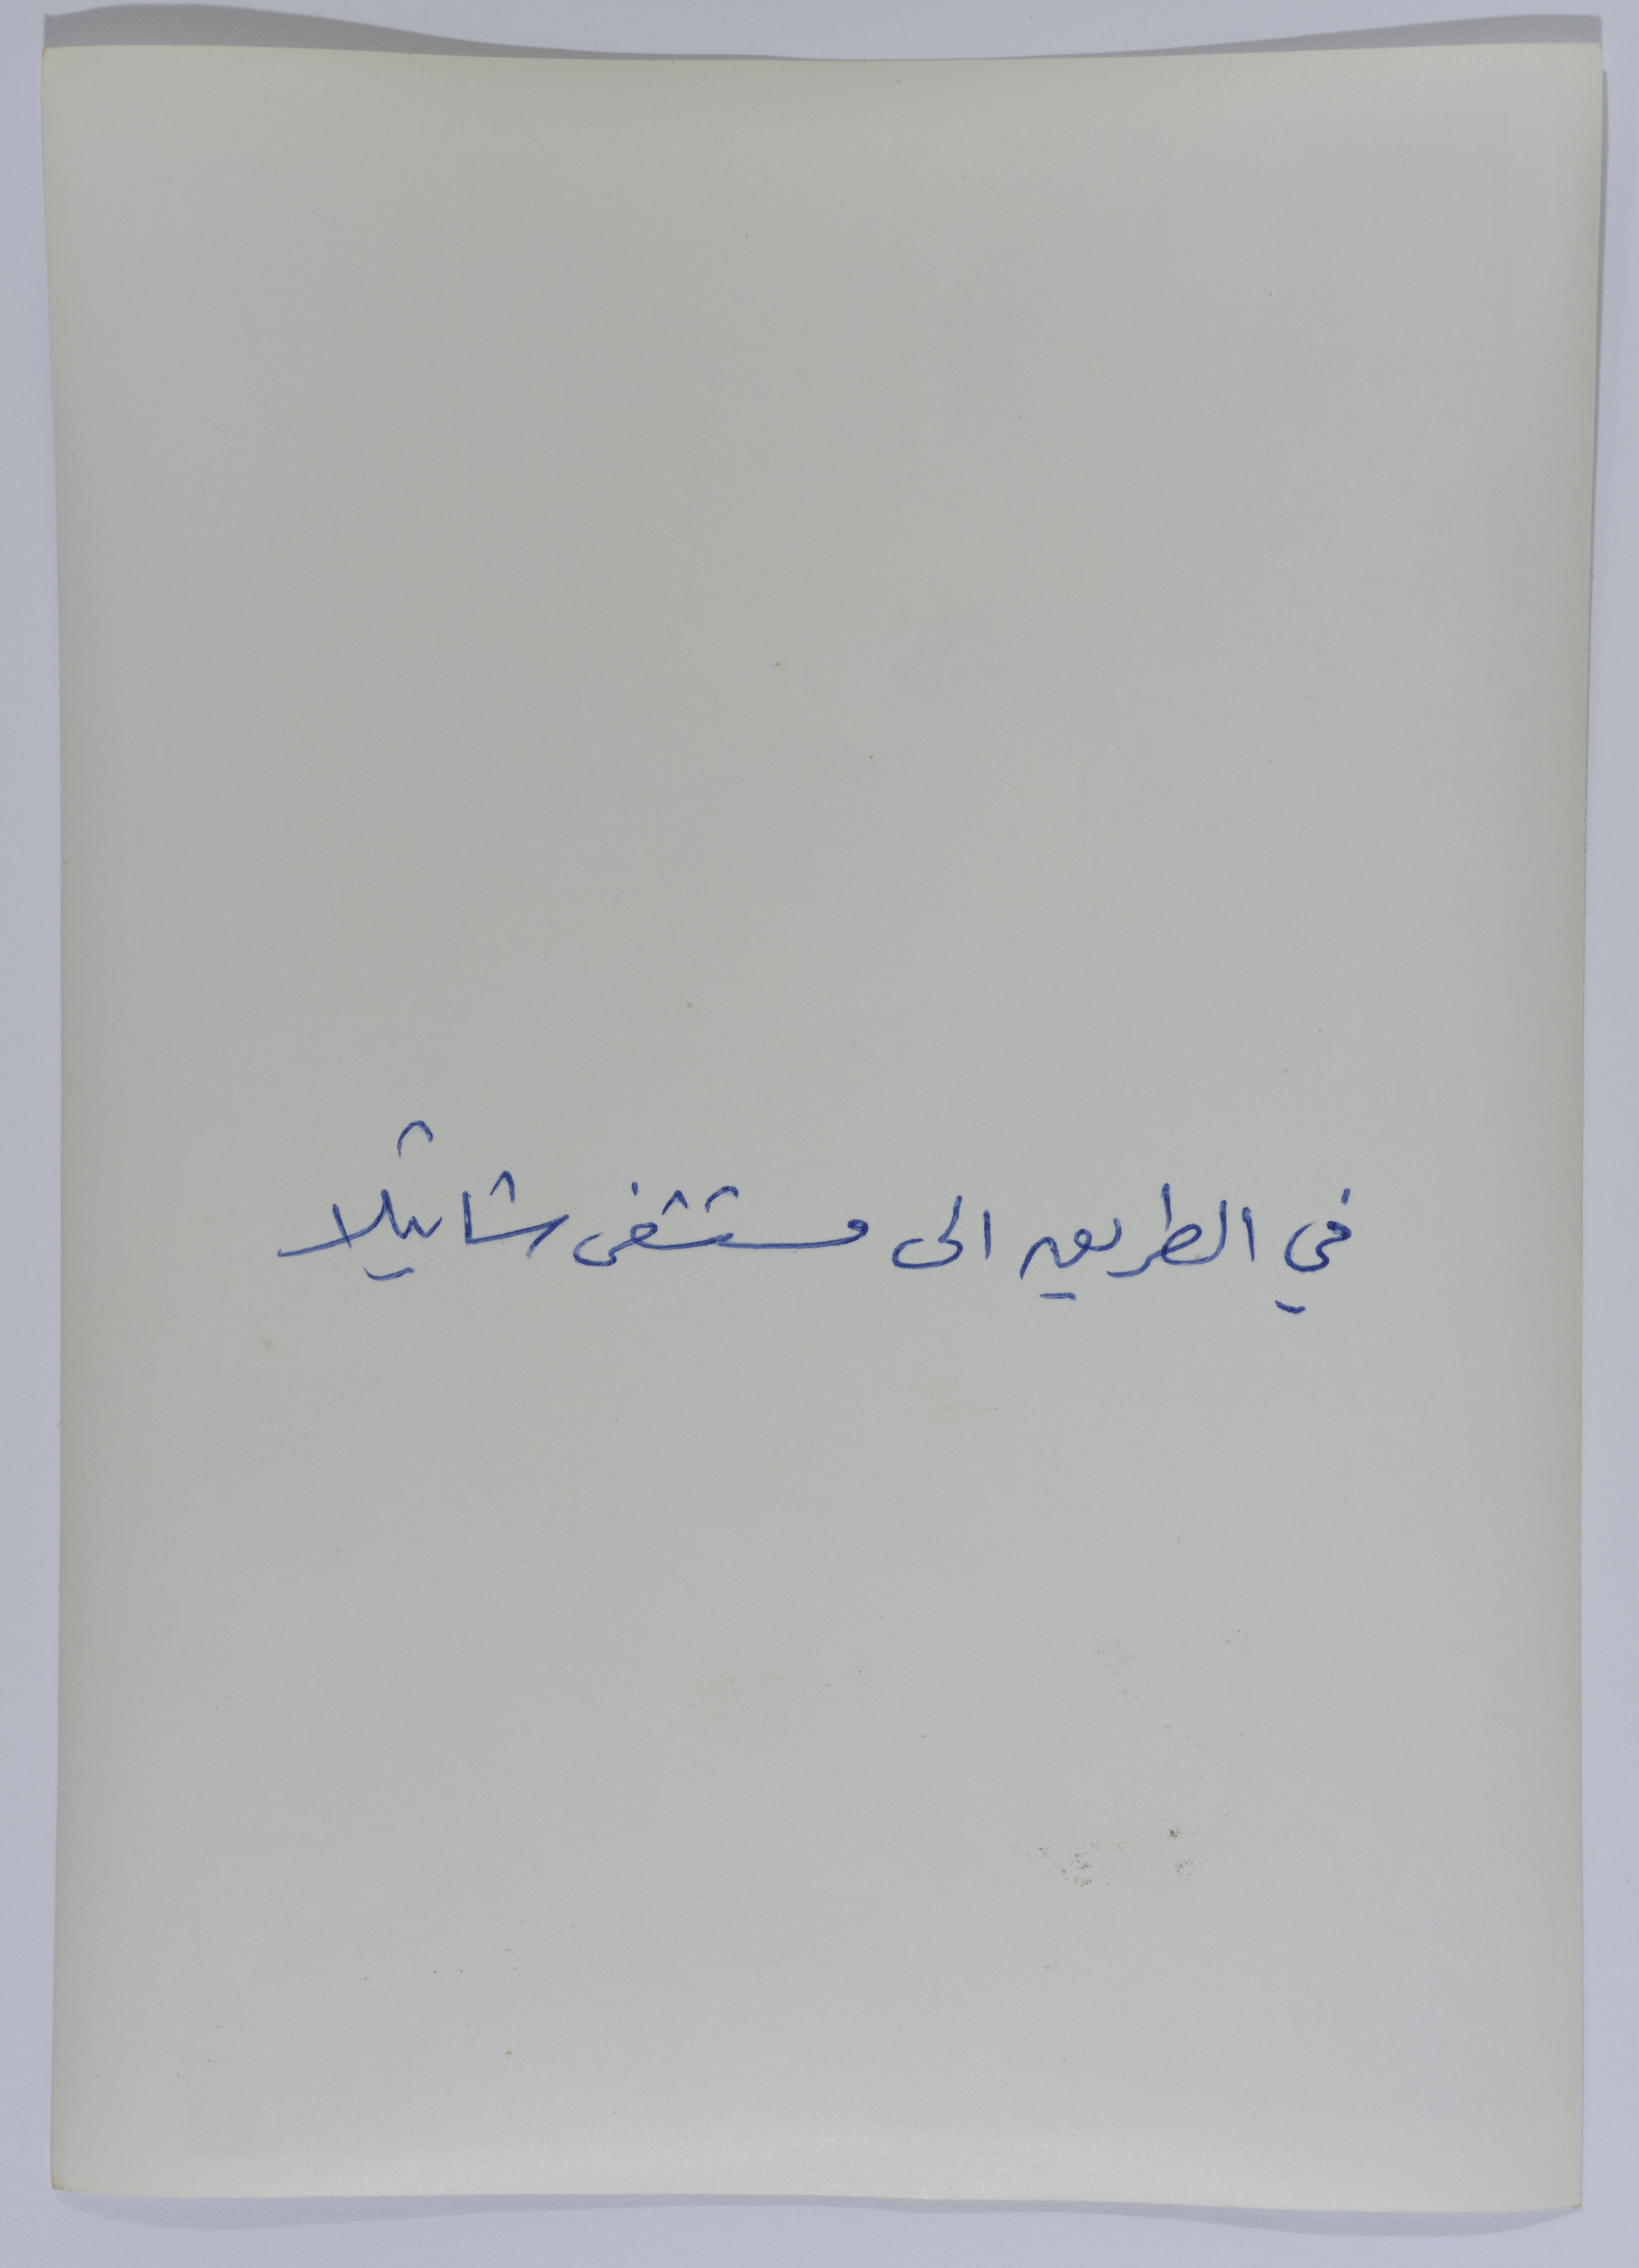 في الطريق الى مستشفى شاتيلا